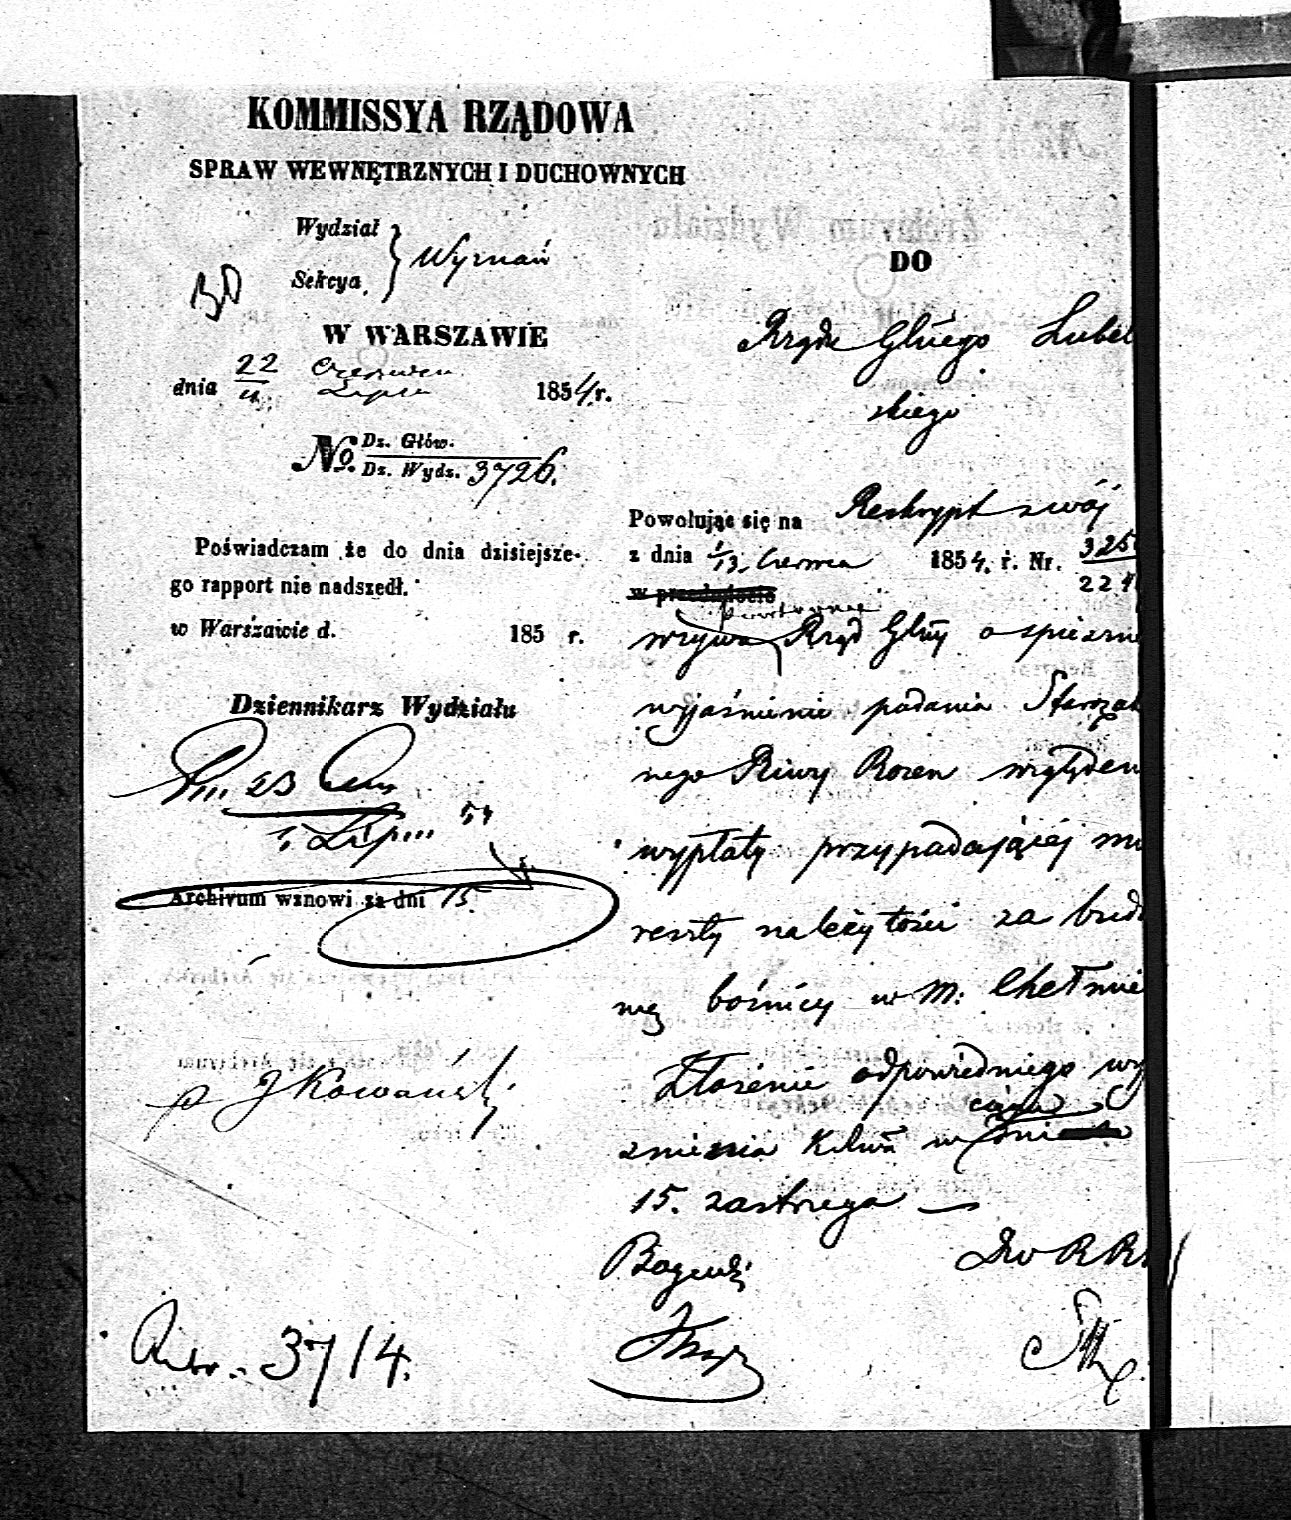 KOMMISSYA RZĄDOWA
SPRAW WEWNĘTRZNYCH I DUCHOWNYCH
Wydział
Sekcya
Wyznań
W WARSZAWIE
dnia 22 Czerwca 1854 r.
4 Lipca
No. Dz. Głów.
Dz. Wydz. 3726.
Poświadczam że do dnia dzisiejsze-
go rapport nie nadszedł.
w Warszawie d. 185 r.
Dziennikarz Wydziału
23
Lip 54
Archivum wznowi za dni 15.
3714.
DO
Rządu Glnego Lubel
skiego
Powołując się na Reskrypt swój
z dnia 1/13 Czerwca 1854. r. Nr. 325
224
w przedmiocie
powtórnie
wzywa Rząd Glny o spieszne
wyjaśnienie podania Starozak
nego Riwy Rozen względem
wypłaty przypadającej mu
reszty należytości za budo
wę bożnicy w m: Chełmie
Złożenie odpowiedniego wy
ciągu
15. zastrzega —